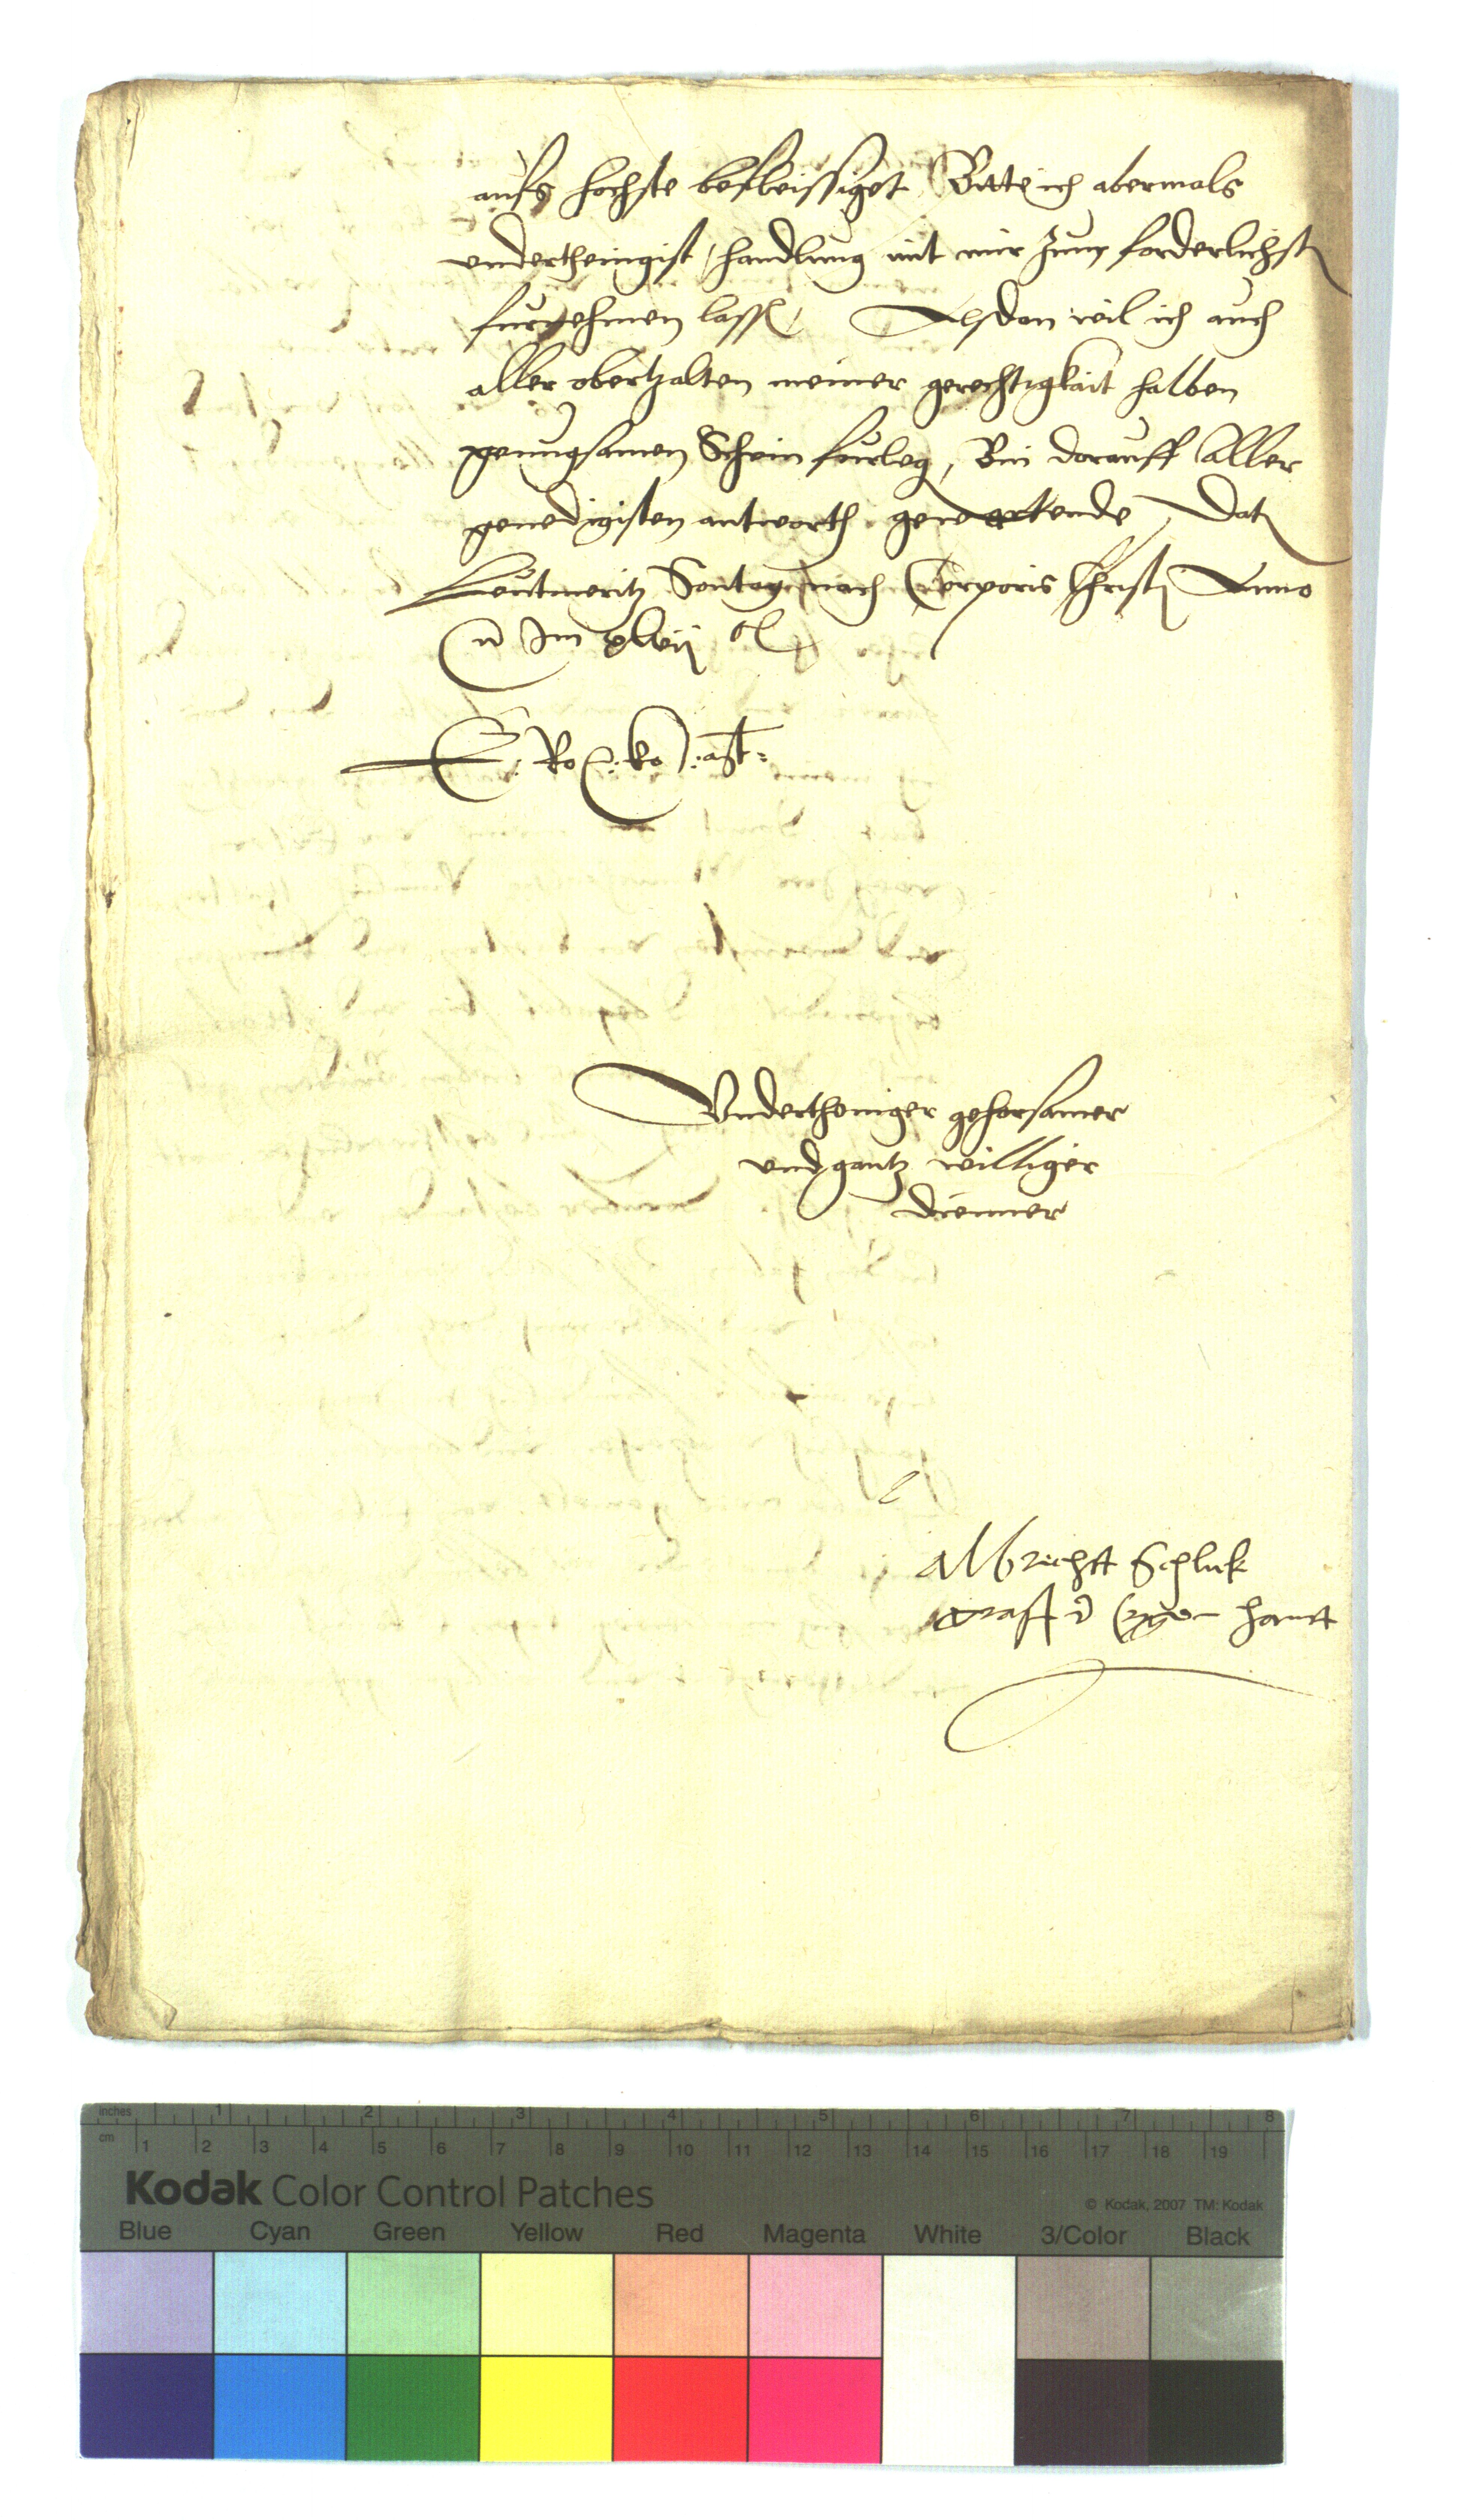 aufs hochste befleissiget Bitte ich abermals
undertheingist handlung mit mir zum forderlichst
furnehmen lassen Alsdan wil ich auch
aller obertzalten meiner gerechtigkait halben
genungsamen Schein furleg, Bin dorauff Aller
genedigisten antworth gewartende Dat
Leutmeritz Sontag nach Corporis Christi Anno
Im xlvij
E: Ro: ko: Mt:
Underthoniger gehorsamer
und gantz williger
dienner
Albrechtt Schlick
hantt
inches 1 2 3 4 5 6 7 8
cm 1 2 3 4 5 6 7 8 9 10 11 12 13 14 15 16 17 18 19
Kodak Color Control Patches
© Kodak, 2007 TM: Kodak
Blue Cyan Green Yellow Red Magenta White 3/Color Black